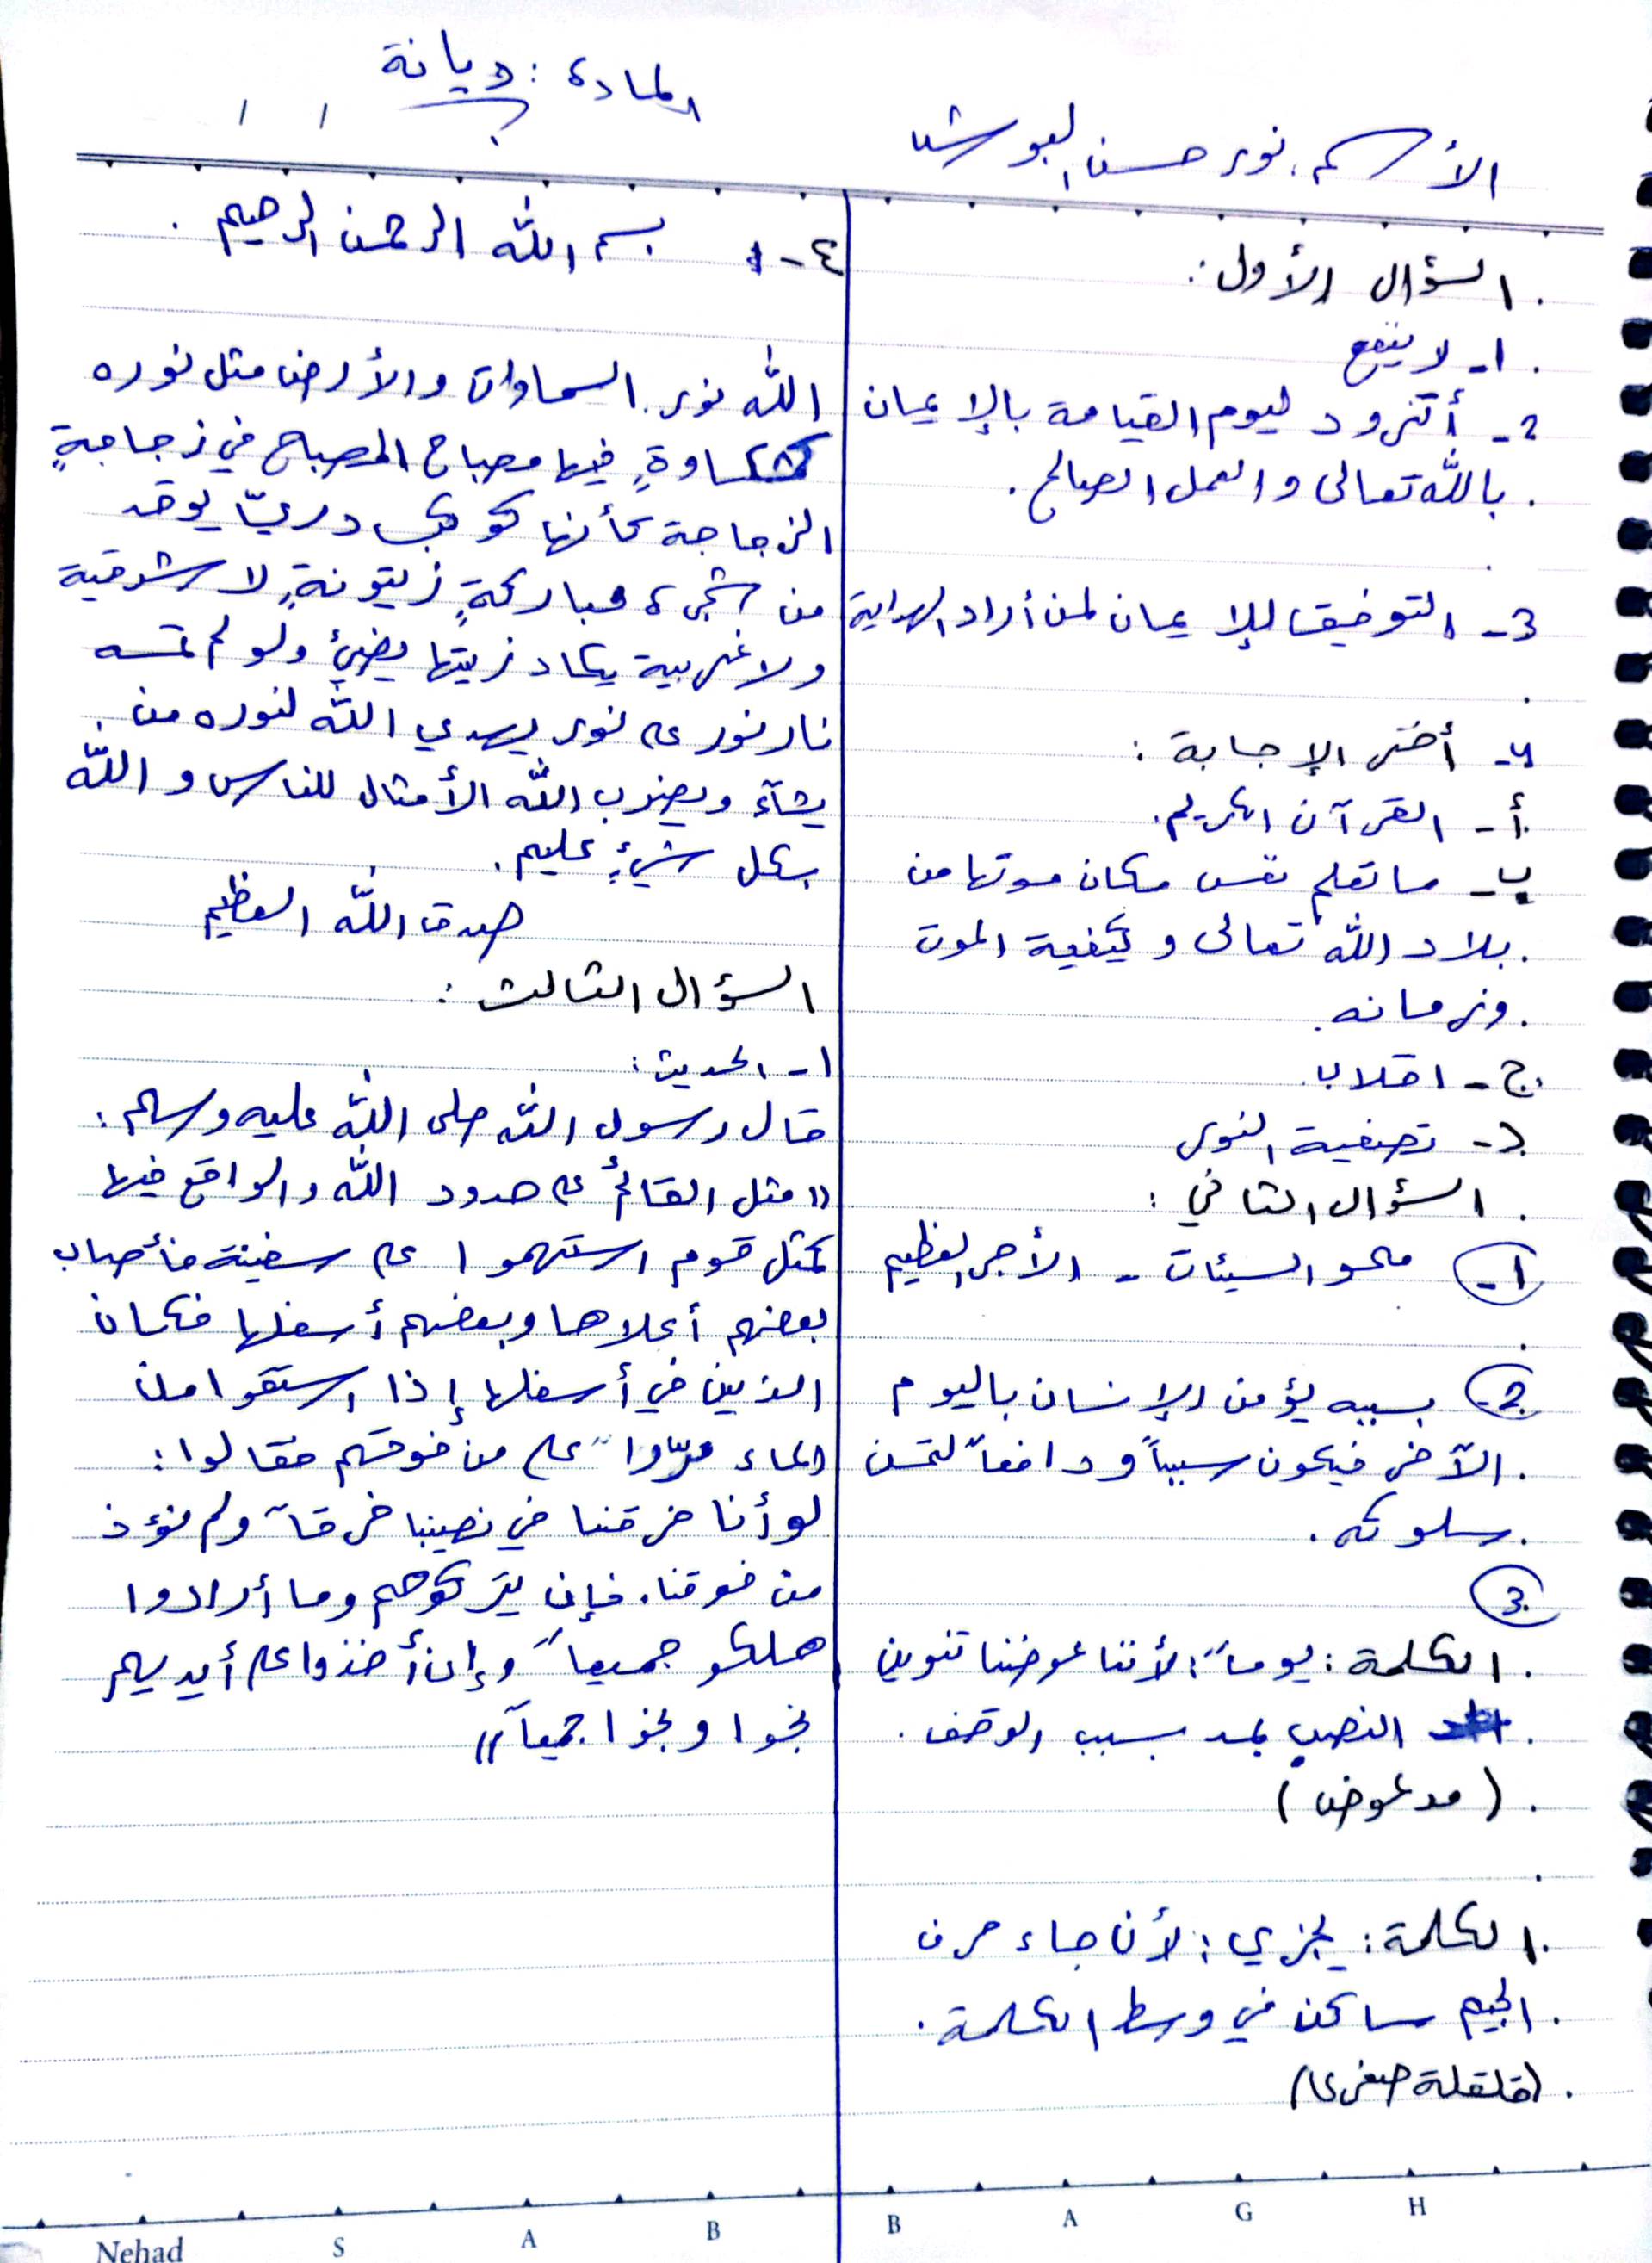 المادة : ديانة
الأسم : نور حسن البوشي
السؤال الأول :
1- لا ينفع
2- أتزود ليوم القيامة بالإيمان
بالله تعالى والعمل الصالح .
3- التوفيق للإيمان لمن أراد الهداية
4- أختر الإجابة :
أ- القرآن الكريم .
ب- ما تعلم نفس مكان موتها من
بلاد الله تعالى وكيفية الموت
وزمانه .
ج- اقلاب .
د- تصفية النوى
السؤال الثاني :
1- محو السيئات - الأجر العظيم
2- بسببه يؤمن الإنسان باليوم
الآخر فيكون سبباً ودافعاً لتحسن
سلوكه .
3
الكلمة : يوماً : لأننا عوضنا تنوين
النصب بمد بسبب الوقف .
( مد عوض )
الكلمة : يجزي : لأن جاء حرف
الجيم ساكن في وسط الكلمة .
(قلقلة صغرى)
٤-1 بسم الله الرحمن الرحيم .
الله نور السماوات والأرض مثل نوره
كمشكاوةٍ فيها مصباح المصباح في زجاجةٍ
الزجاجة كأنها كوكب دريّ يوقد
من شجرة مباركةٍ زيتونةٍ لا شرقية
ولا غربية يكاد زيتها يضيئ ولو لم تمسه
نار نور على نور يهدي الله لنوره من
يشآء ويضرب الله الأمثال للناس والله
بكل شيءٍ عليم .
صدق الله العظيم
السؤال الثالث :
1- الحديث :
قال رسول الله صلى الله عليه وسلم :
"مثل القائم على حدود الله والواقع فيها
كمثل قوم استهموا على سفينة فأصاب
بعضهم أعلاها وبعضهم أسفلها فكان
الذين في أسفلها إذا استقوا من
الماء مرّوا على من فوقهم فقالوا :
لو أنا خرقنا في نصيبنا خرقاً ولم نؤذ
من فوقنا . فإن يتركوهم وما أرادوا
هلكو جميعاً وإن أخذوا على أيديهم
نجوا ونجوا جميعاً"
Nehad S A B B A G H